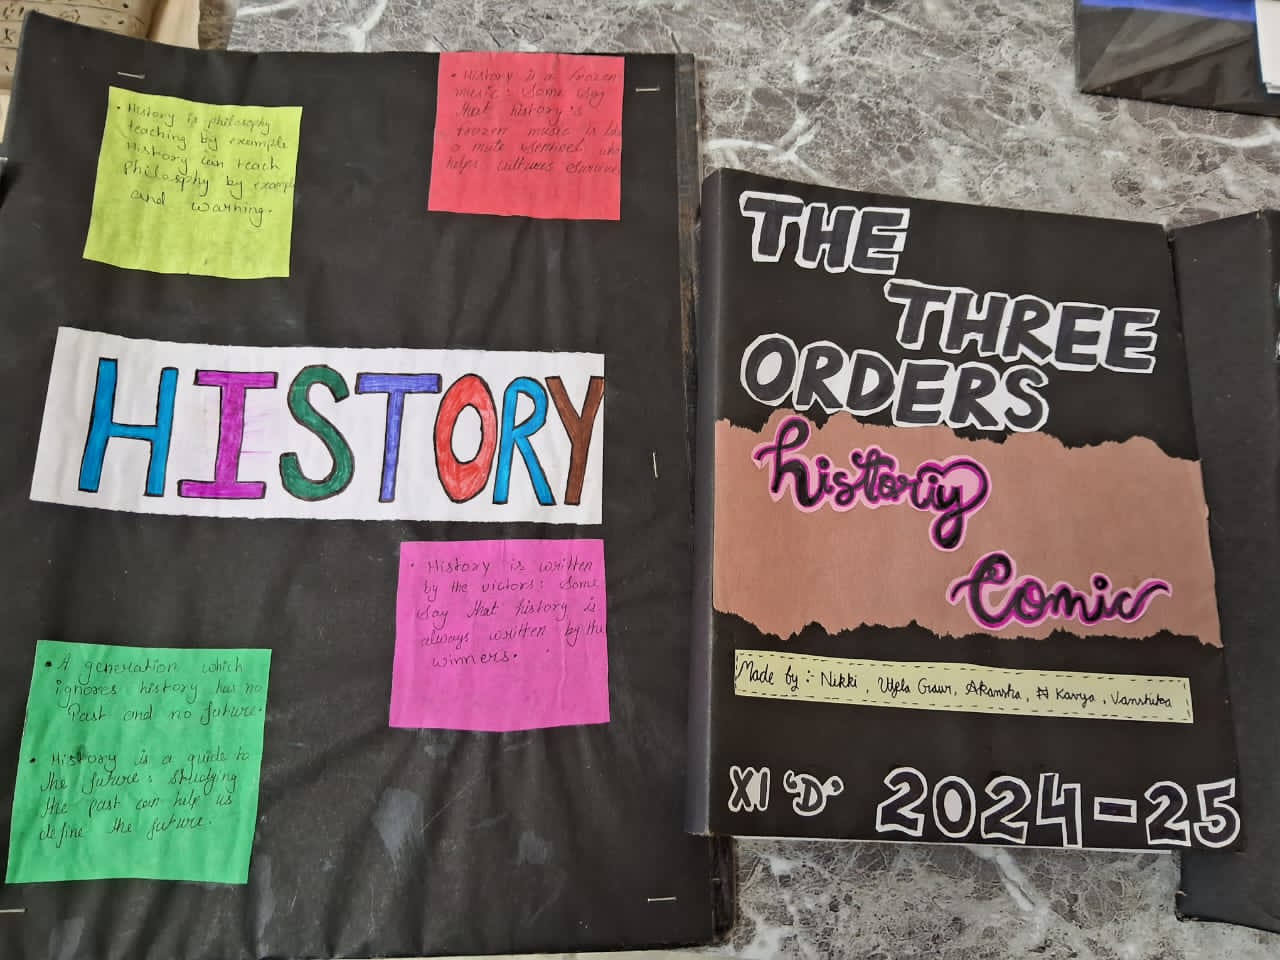 • History is philosophy
teaching by example
History can teach
Philosophy by example
and warning.
• History is a frozen
music: Some say
that history's
frozen music is like
a mute sentinel who
helps cultures survive
HISTORY
• History is written
by the victors: Some
say that history is
always written by the
winners.
• A generation which
ignores history has no
Past and no future.
• History is a guide to
the future: Studying
the past can help us
define the future.
THE
THREE
ORDERS
historiy
Comic
Made by :- Nikki, Gaur, Akansha, Kavya, Vanshika
XI 'D' 2024-25